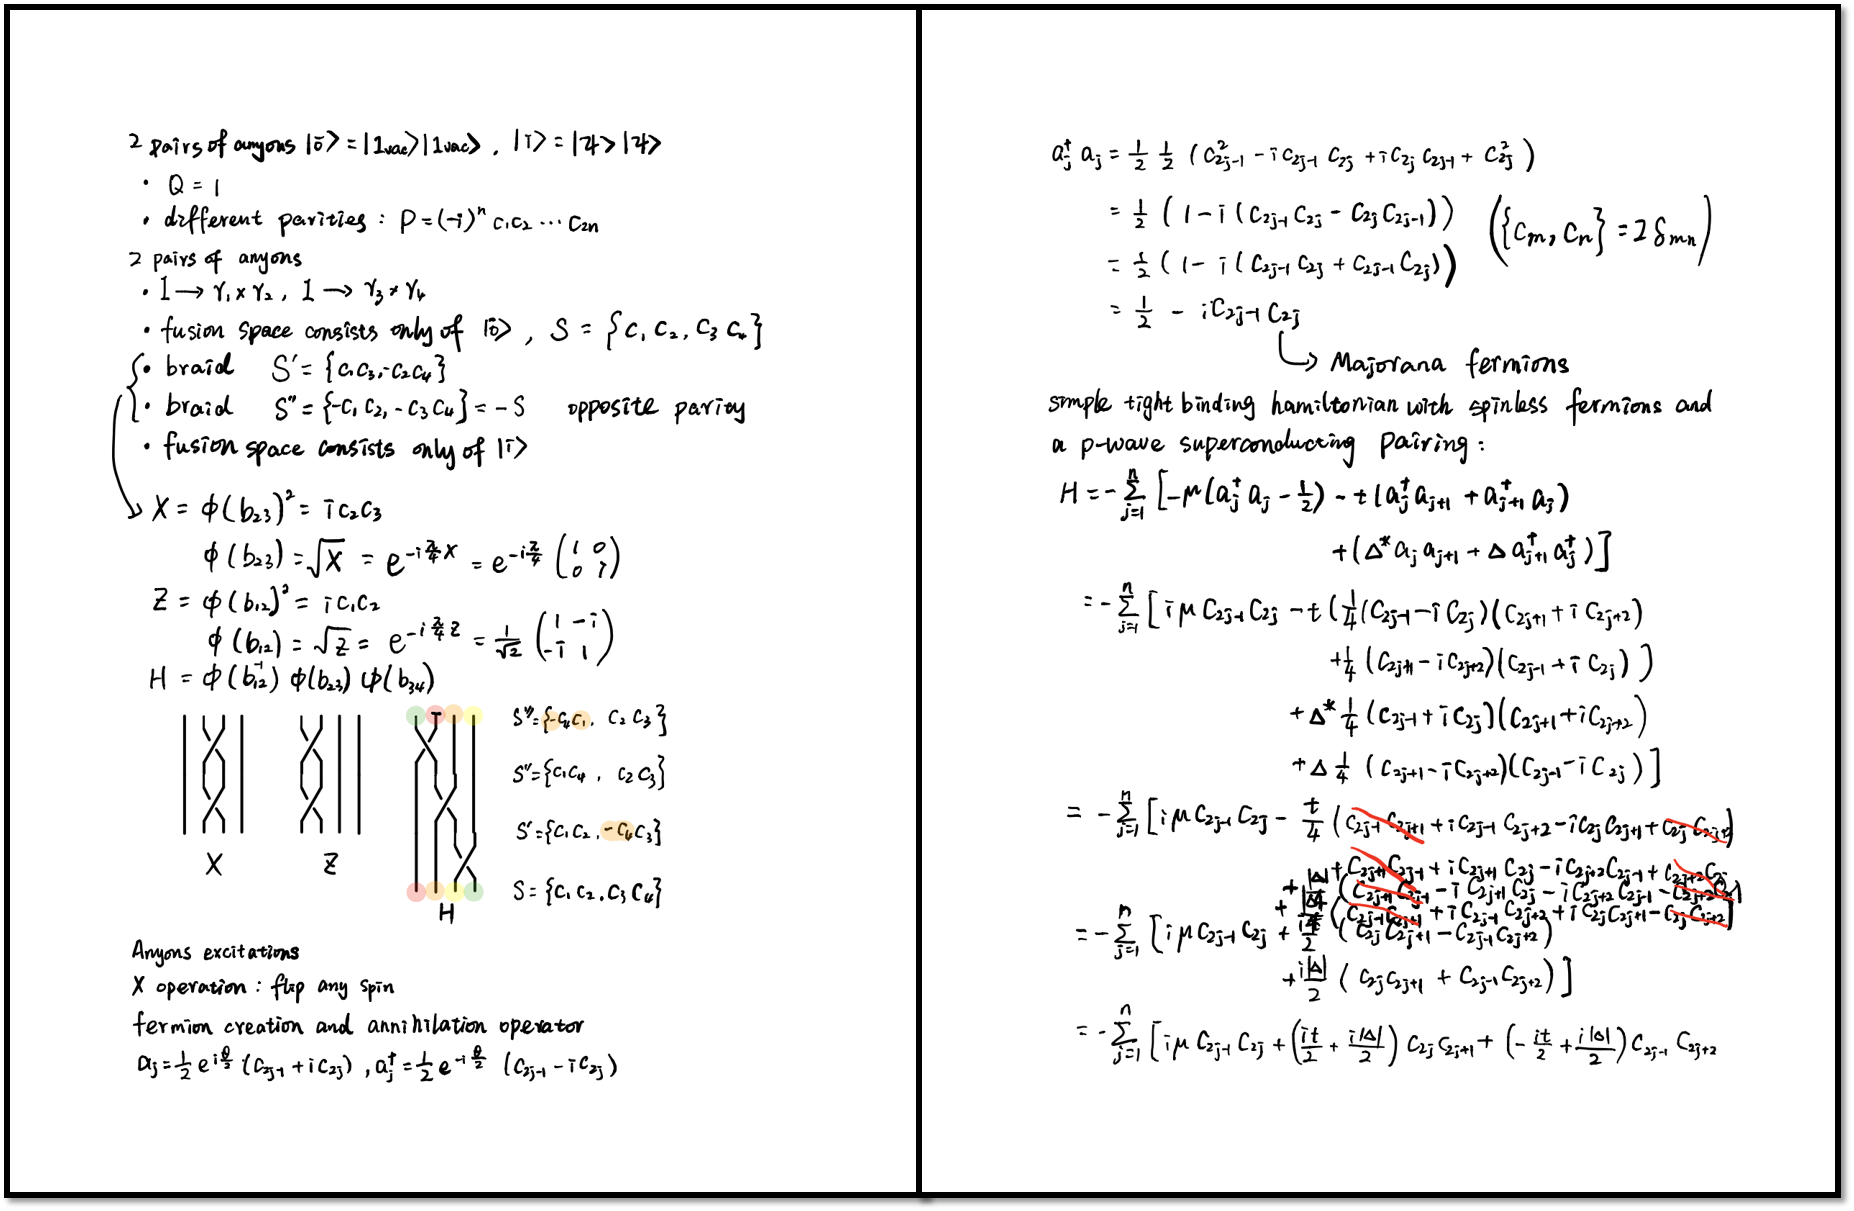 2 pairs of anyons |ō> = |1vac>|1vac> , |ī> = |ψ>|ψ>
· Q = 1
· different parities : P = (-i)ⁿ c₁c₂ ··· c₂ₙ
2 pairs of anyons
· 1 → γ₁ × γ₂ , 1 → γ₃ × γ₄
· fusion space consists only of |ō> , S = {c₁ c₂, c₃ c₄}
· braid S' = {c₁c₃, -c₂c₄}
· braid S'' = {-c₁ c₂, -c₃ c₄} = -S opposite parity
· fusion space consists only of |ī>
X = φ(b₂₃)² = i c₂c₃
φ(b₂₃) = √X = e^{-i π/4 X} = e^{-i π/4} (1 0 ; 0 i)
Z = φ(b₁₂)² = i c₁c₂
φ(b₁₂) = √Z = e^{-i π/4 Z} = 1/√2 (1 -i ; -i 1)
H = φ(b₁₂⁻¹) φ(b₂₃) φ(b₃₄)
S''' = {-c₄c₁, c₂ c₃}
S'' = {c₁c₄ , c₂ c₃}
S' = {c₁c₂, -c₄c₃}
S = {c₁ c₂, c₃ c₄}
X Z H
Anyons excitations
X operation : flip any spin
fermion creation and annihilation operator
aⱼ = 1/2 e^{i θ/2} (c₂ⱼ₋₁ + i c₂ⱼ) , aⱼ† = 1/2 e^{-i θ/2} (c₂ⱼ₋₁ - i c₂ⱼ)
aⱼ† aⱼ = 1/2 1/2 (c²₂ⱼ₋₁ - i c₂ⱼ₋₁ c₂ⱼ + i c₂ⱼ c₂ⱼ₋₁ + c²₂ⱼ)
= 1/2 (1 - i (c₂ⱼ₋₁ c₂ⱼ - c₂ⱼ c₂ⱼ₋₁)) ({cₘ, cₙ} = 2δₘₙ)
= 1/2 (1 - i (c₂ⱼ₋₁ c₂ⱼ + c₂ⱼ₋₁ c₂ⱼ))
= 1/2 - i c₂ⱼ₋₁ c₂ⱼ
↳ Majorana fermions
simple tight binding hamiltonian with spinless fermions and
a p-wave superconducting pairing :
H = -∑ⁿⱼ₌₁ [-μ(aⱼ† aⱼ - 1/2) - t(aⱼ† aⱼ₊₁ + aⱼ₊₁† aⱼ)
+ (Δ* aⱼ aⱼ₊₁ + Δ aⱼ₊₁† aⱼ†)]
= -∑ⁿⱼ₌₁ [iμ c₂ⱼ₋₁ c₂ⱼ - t (1/4 (c₂ⱼ₋₁ - i c₂ⱼ)(c₂ⱼ₊₁ + i c₂ⱼ₊₂)
+ 1/4 (c₂ⱼ₊₁ - i c₂ⱼ₊₂)(c₂ⱼ₋₁ + i c₂ⱼ) )
+ Δ* 1/4 (c₂ⱼ₋₁ + i c₂ⱼ)(c₂ⱼ₊₁ + i c₂ⱼ₊₂)
+ Δ 1/4 (c₂ⱼ₊₁ - i c₂ⱼ₊₂)(c₂ⱼ₋₁ - i c₂ⱼ)]
= -∑ⁿⱼ₌₁ [iμ c₂ⱼ₋₁ c₂ⱼ - t/4 (c₂ⱼ₋₁ c₂ⱼ₊₁ + i c₂ⱼ₋₁ c₂ⱼ₊₂ - i c₂ⱼ c₂ⱼ₊₁ + c₂ⱼ c₂ⱼ₊₂)
+ c₂ⱼ₊₁ c₂ⱼ₋₁ + i c₂ⱼ₊₁ c₂ⱼ - i c₂ⱼ₊₂ c₂ⱼ₋₁ + c₂ⱼ₊₂ c₂ⱼ
+ |Δ|/4 (c₂ⱼ₊₁ c₂ⱼ₋₁ - i c₂ⱼ₊₁ c₂ⱼ - i c₂ⱼ₊₂ c₂ⱼ₋₁ - c₂ⱼ₊₂ c₂ⱼ)
+ (c₂ⱼ₋₁ c₂ⱼ₊₁ + i c₂ⱼ₋₁ c₂ⱼ₊₂ + i c₂ⱼ c₂ⱼ₊₁ - c₂ⱼ c₂ⱼ₊₂)]
= -∑ⁿⱼ₌₁ [iμ c₂ⱼ₋₁ c₂ⱼ + it/2 (c₂ⱼ c₂ⱼ₊₁ - c₂ⱼ₋₁ c₂ⱼ₊₂)
+ i|Δ|/2 (c₂ⱼ c₂ⱼ₊₁ + c₂ⱼ₋₁ c₂ⱼ₊₂)]
= -∑ⁿⱼ₌₁ [iμ c₂ⱼ₋₁ c₂ⱼ + (it/2 + i|Δ|/2) c₂ⱼ c₂ⱼ₊₁ + (-it/2 + i|Δ|/2) c₂ⱼ₋₁ c₂ⱼ₊₂